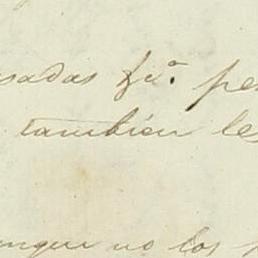 sadas fu.ª pe
tambien les
unque no los